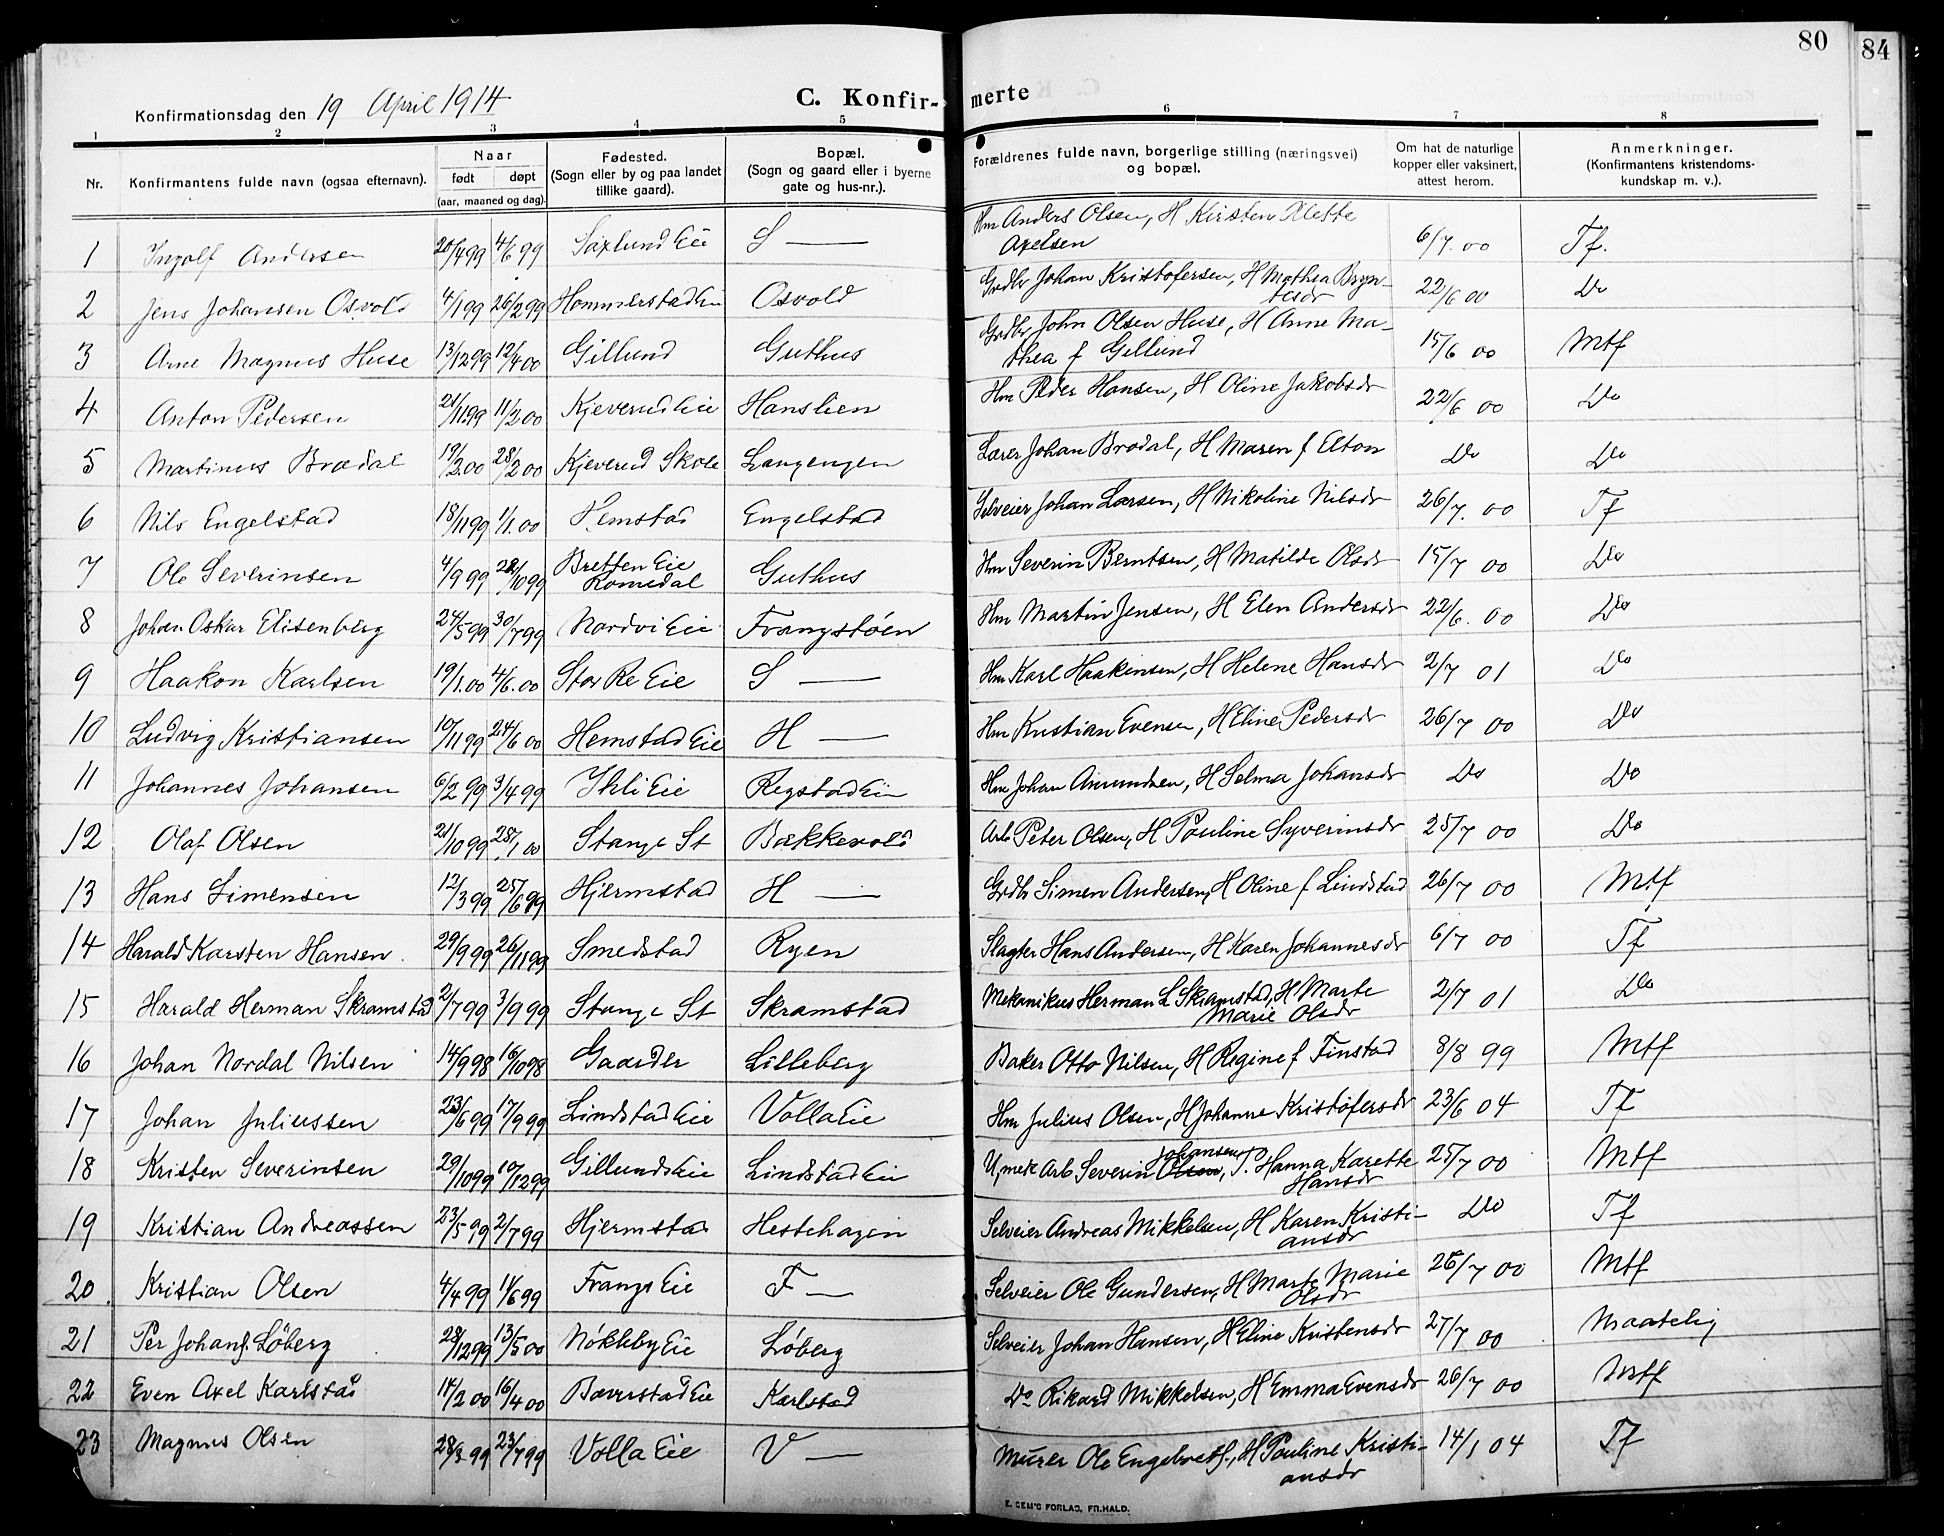 80
84
Konfirmationsdag den 19 April 1914
C. Konfir-
merte
1 2 3 4 5 6 7 8
Nr.
Konfirmantens fulde navn (ogsaa efternavn).
Naar
født døpt
(aar, maaned og dag).
Fødested.
(Sogn eller by og paa landet
tillike gaard).
Bopæl.
(Sogn og gaard eller i byerne
gate og hus-nr.).
Forældrenes fulde navn, borgerlige stilling (næringsvei)
og bopæl.
Om hat de naturlige
kopper eller vaksinert,
attest herom.
Anmerkninger.
(Konfirmantens kristendoms-
kundskap m. v.).
1 Ingolf Andersen 20/4 99 4/6 99 Saxlund Eie S — Hm Anders Olsen, H Kirsten
Axelsen 6/7. 00 Tf.
2 Jens Johansen Osvold 4/1 99 26/2 99 Hommerstad Eie Osvold Grdbr Johan Kristofersen, H Mathea Bryn-
tesdr 22/6 00 Do
3 Arne Magnus Huse 13/12 99 12/4 00 Gillund Guthus Grdbr John Olsen Huse, H Anne Ma-
thea f Gillund 15/6 00 Mtf
4 Anton Pedersen 21/11 99 11/2 00 Kjeverud Eie Hanslien Hm Peder Hansen, H Oline Jakobsdr 22/6 00 Do
5 Martinus Brodal 19/2.00 28/2 00 Kjeverud Skole Langengen Lærer Johan Brodal, H Maren f Elton Do Do
6 Nils Engelstad 18/11 99 1/1.00 Hemstad Engelstad Selveier Johan Larsen, H Nikoline Nilsdr 26/7. 00 Tf
7 Ole Severinsen 4/9 99 22/10 99 Bretten Eie
Romedal Guthus Hm Severin Berntsen, H Matilde Olsdr 15/7 00 Do
8 Johan Oskar Elisenberg 24/5 99 30/7 99 Nordvi Eie Frangstöen Hm Martin Jensen, H Elen Andersdr 22/6. 00 Do
9 Haakon Karlsen 19/1.00 4/6.00 Stor Re Eie S — Hm Karl Haakinsen, H Helene Hansdr 2/7 01 Do
10 Ludvig Kristiansen 10/11 99 24/6 00 Hemstad Eie H — Hm Kristian Evensen, H Eline Pedersdr 26/7 00 Do
11 Johannes Johansen 6/2 99 3/4 99 Ihli Eie Regstad Eie Hm Johan Amundsen, H Selma Johansdr Do Do
12 Olaf Olsen 21/10 99 28/1 00 Stange St Bækkevold Arb Peter Olsen, H Pauline Syverinsdr 25/7 00 Do
13 Hans Simensen 12/3 99 25/6 99 Hjermstad H — Grdbr Simen Andersen, H Oline f Lindstad 26/7 00 Mtf
14 Harald Karsten Hansen. 29/9 99 26/11 99 Smedstad Ryen Slagter Hans Andersen, H Karen Johannesdr 6/7 00 Tf
15 Harald Herman Skramstad 2/7 99 3/9 99 Stange St Skramstad Mekanikus Herman L Skramstad, H Marte
Marie Olsdr 2/7 01 Do
16 Johan Nordal Nilsen 14/9 98 16/10 98 Gaarder Lilleberg Baker Otto Nilsen, H Regine f Finstad 8/8 99 Mtf
17 Johan Juliussen 23/6 99 17/9 99 Lindstad Eie Volla Eie Hm Julius Olsen, H Johanne Kristofersdr 23/6 04 Tf
18 Kristen Severinsen 29/10 99 10/12 99 Gillunds Eie Lindstad Eie Johansen
U, mete Arb. Severin Olsen, P. Hanna Karette
Hansdr 25/7 00 Mtf
19 Kristian Andreassen 23/5.99 2/7 99 Hjermstad Hestehagen Selveier Andreas Mikkelsen, H Karen Kristi-
ansdr Do Tf
20. Kristian Olsen 4/4 99 11/6 99 Frangs Eie F — Selveier Ole Gundersen, H Marte Marie
Olsdr 25/7 00 Mtf
21 Per Johans. Löberg 28/12 99 13/5 00 Nökleby Eie Löberg Selveier Johan Hansen, H Eline Kristensdr 27/7 00 Maatelig
22 Even Axel Karlstad 14/2 00 16/4 00 Bæverstad Eie Karlstad Do Rikard Mikkelsen, H Emma Evensdr 26/7 00 Mtf
23 Magnus Olsen 28/3 99 23/7 99 Volla Eie V — Murer Ole Engebrets., H Pauline Kristi-
ansdr 14/1 04 Tf
E. SEM'S FORLAG, FR.HALD.